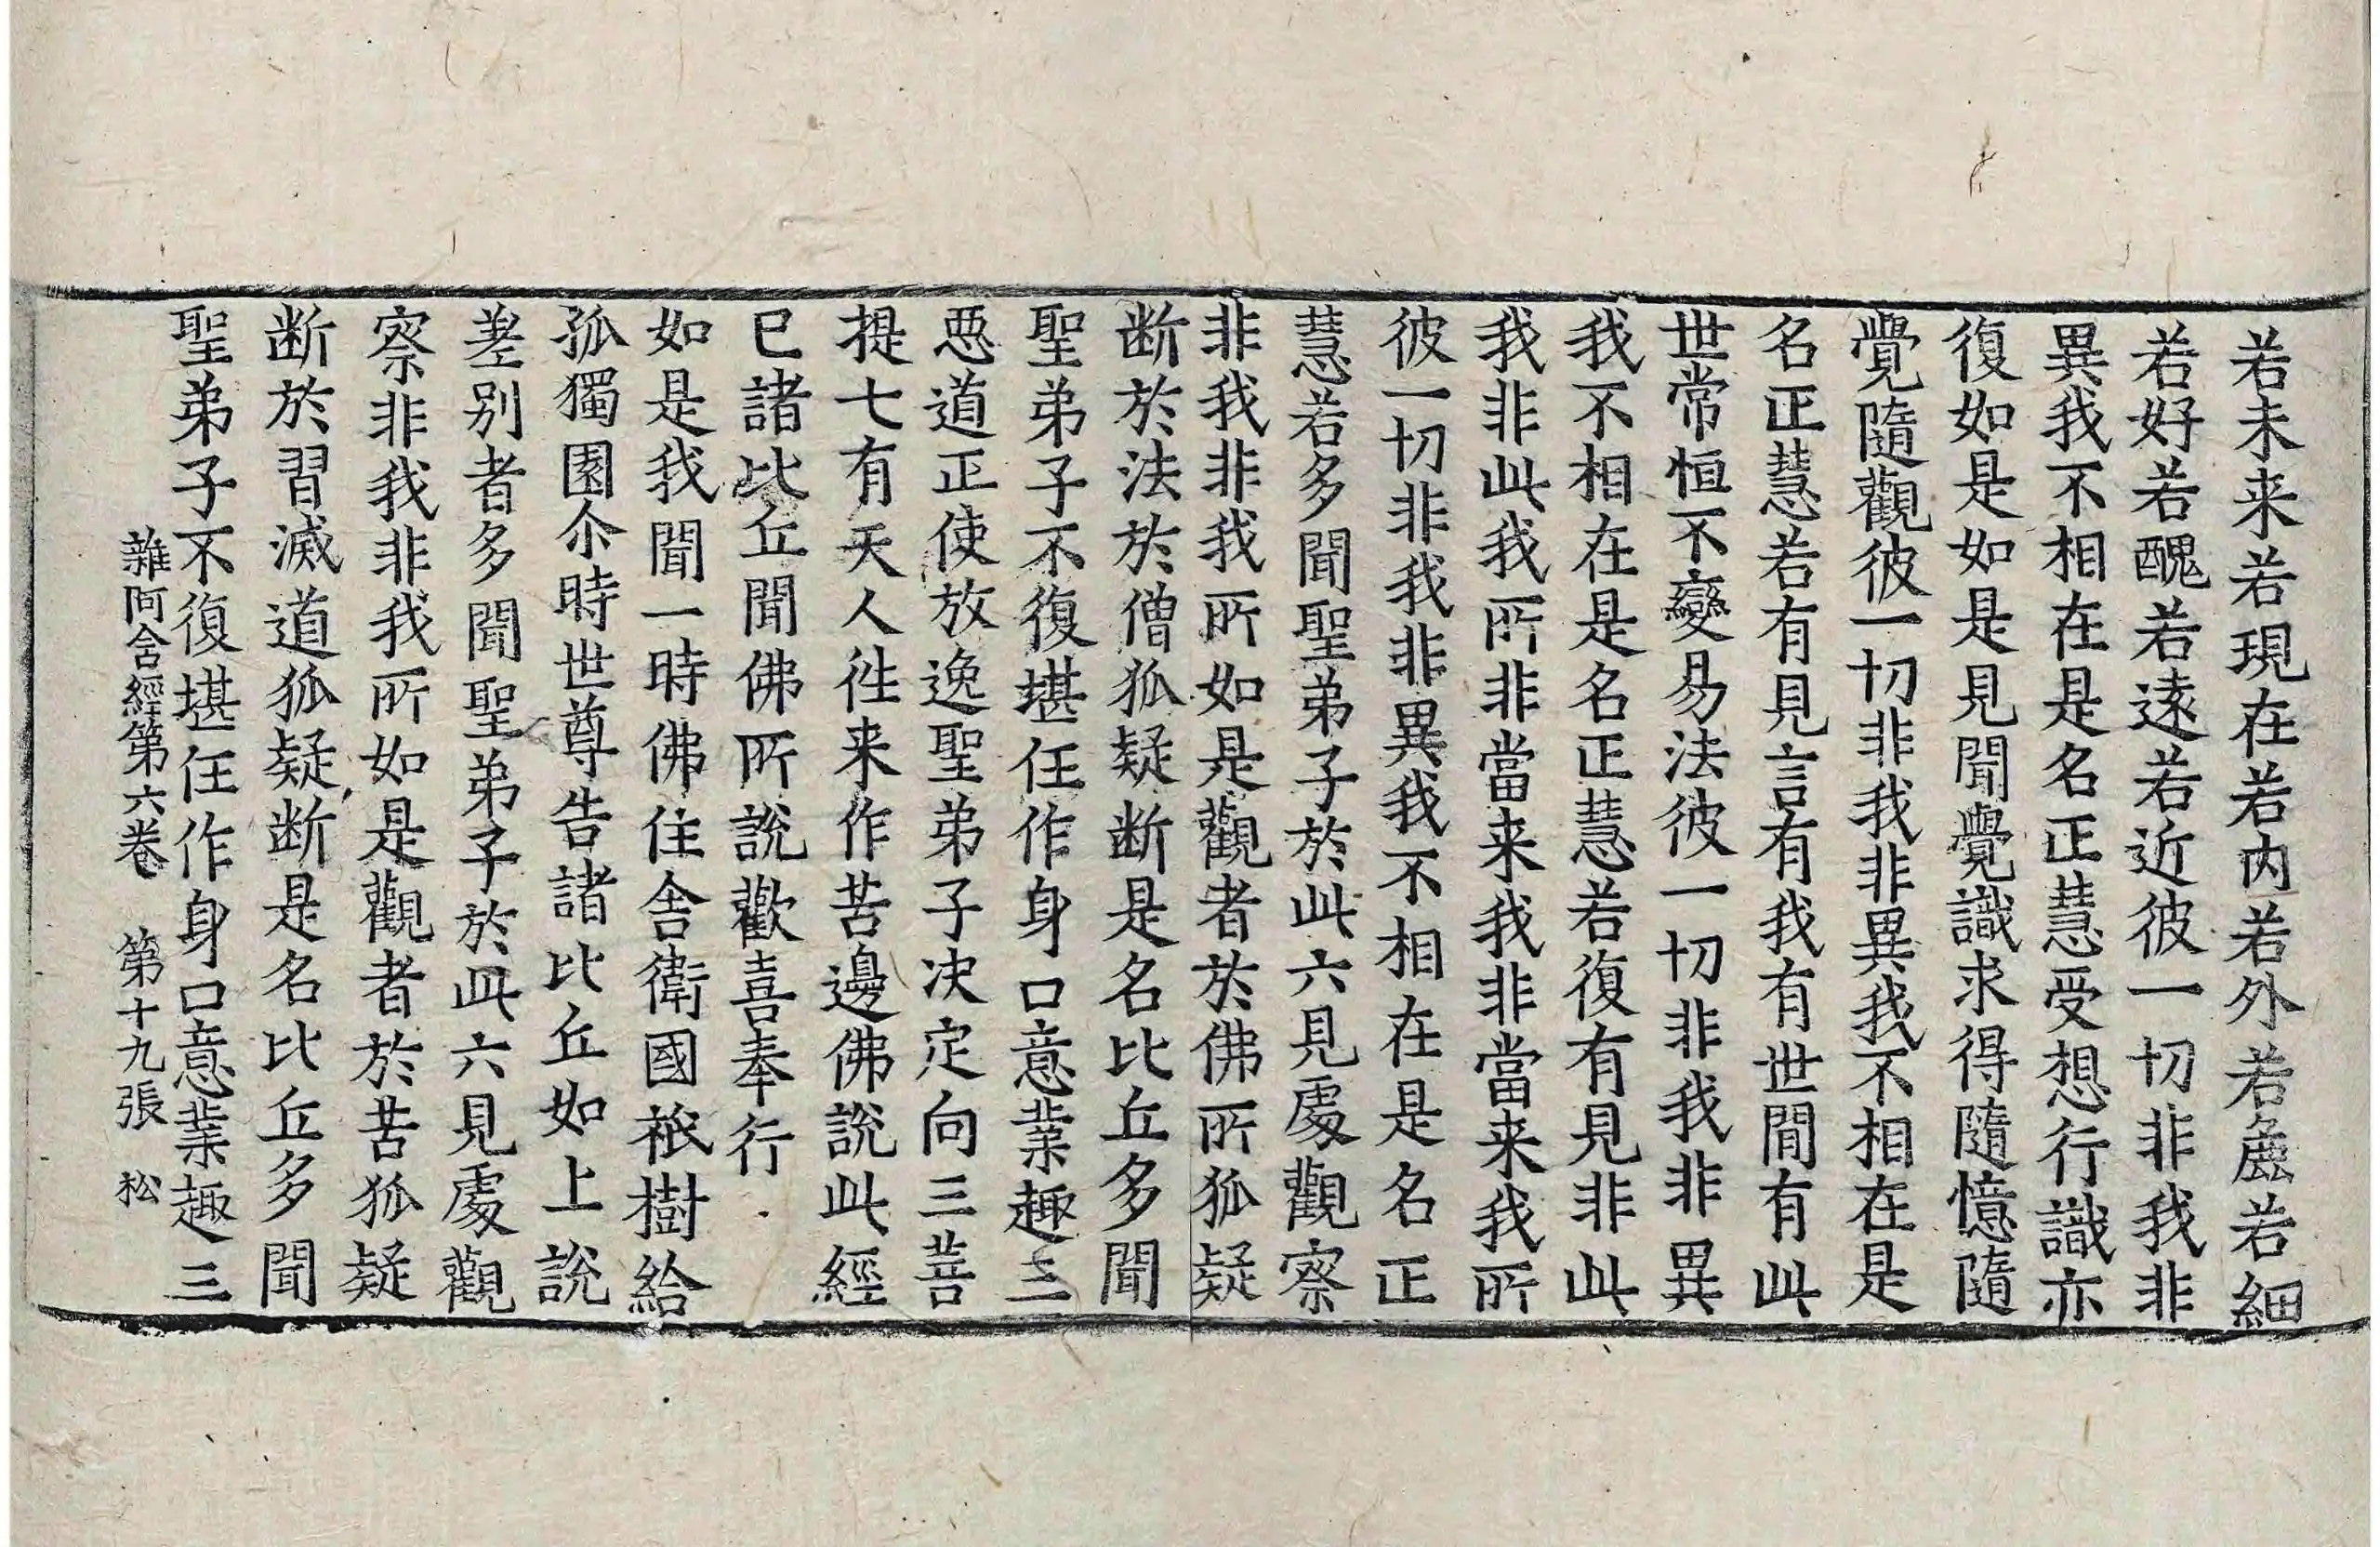 若未来若現在若内若外若麁若細
若好若醜若遠若近彼一切非我非
異我不相在是名正慧受想行識亦
復如是如是見聞覺識求得隨憶隨
覺隨觀彼一切非我非異我不相在是
名正慧若有見言有我有世間有此
世常恒不變易法彼一切非我非異
我不相在是名正慧若復有見非此
我非此我所非當来我非當来我所
彼一切非我非異我不相在是名正
慧若多聞聖弟子於此六見處觀察
非我非我所如是觀者於佛所狐疑
断於法於僧狐疑断是名比丘多聞
聖弟子不復堪任作身口意業趣三
惡道正使放逸聖弟子决定向三菩
提七有天人徃来作苦邊佛說此經
已諸比丘聞佛所說歡喜奉行
如是我聞一時佛住舍衛國祇樹給
孤獨園尒時世尊告諸比丘如上說
差别者多聞聖弟子於此六見處觀
察非我非我所如是觀者於苦狐疑
断於習滅道狐疑断是名比丘多聞
聖弟子不復堪任作身口意業趣三
雜阿含經第六卷 第十九張 松